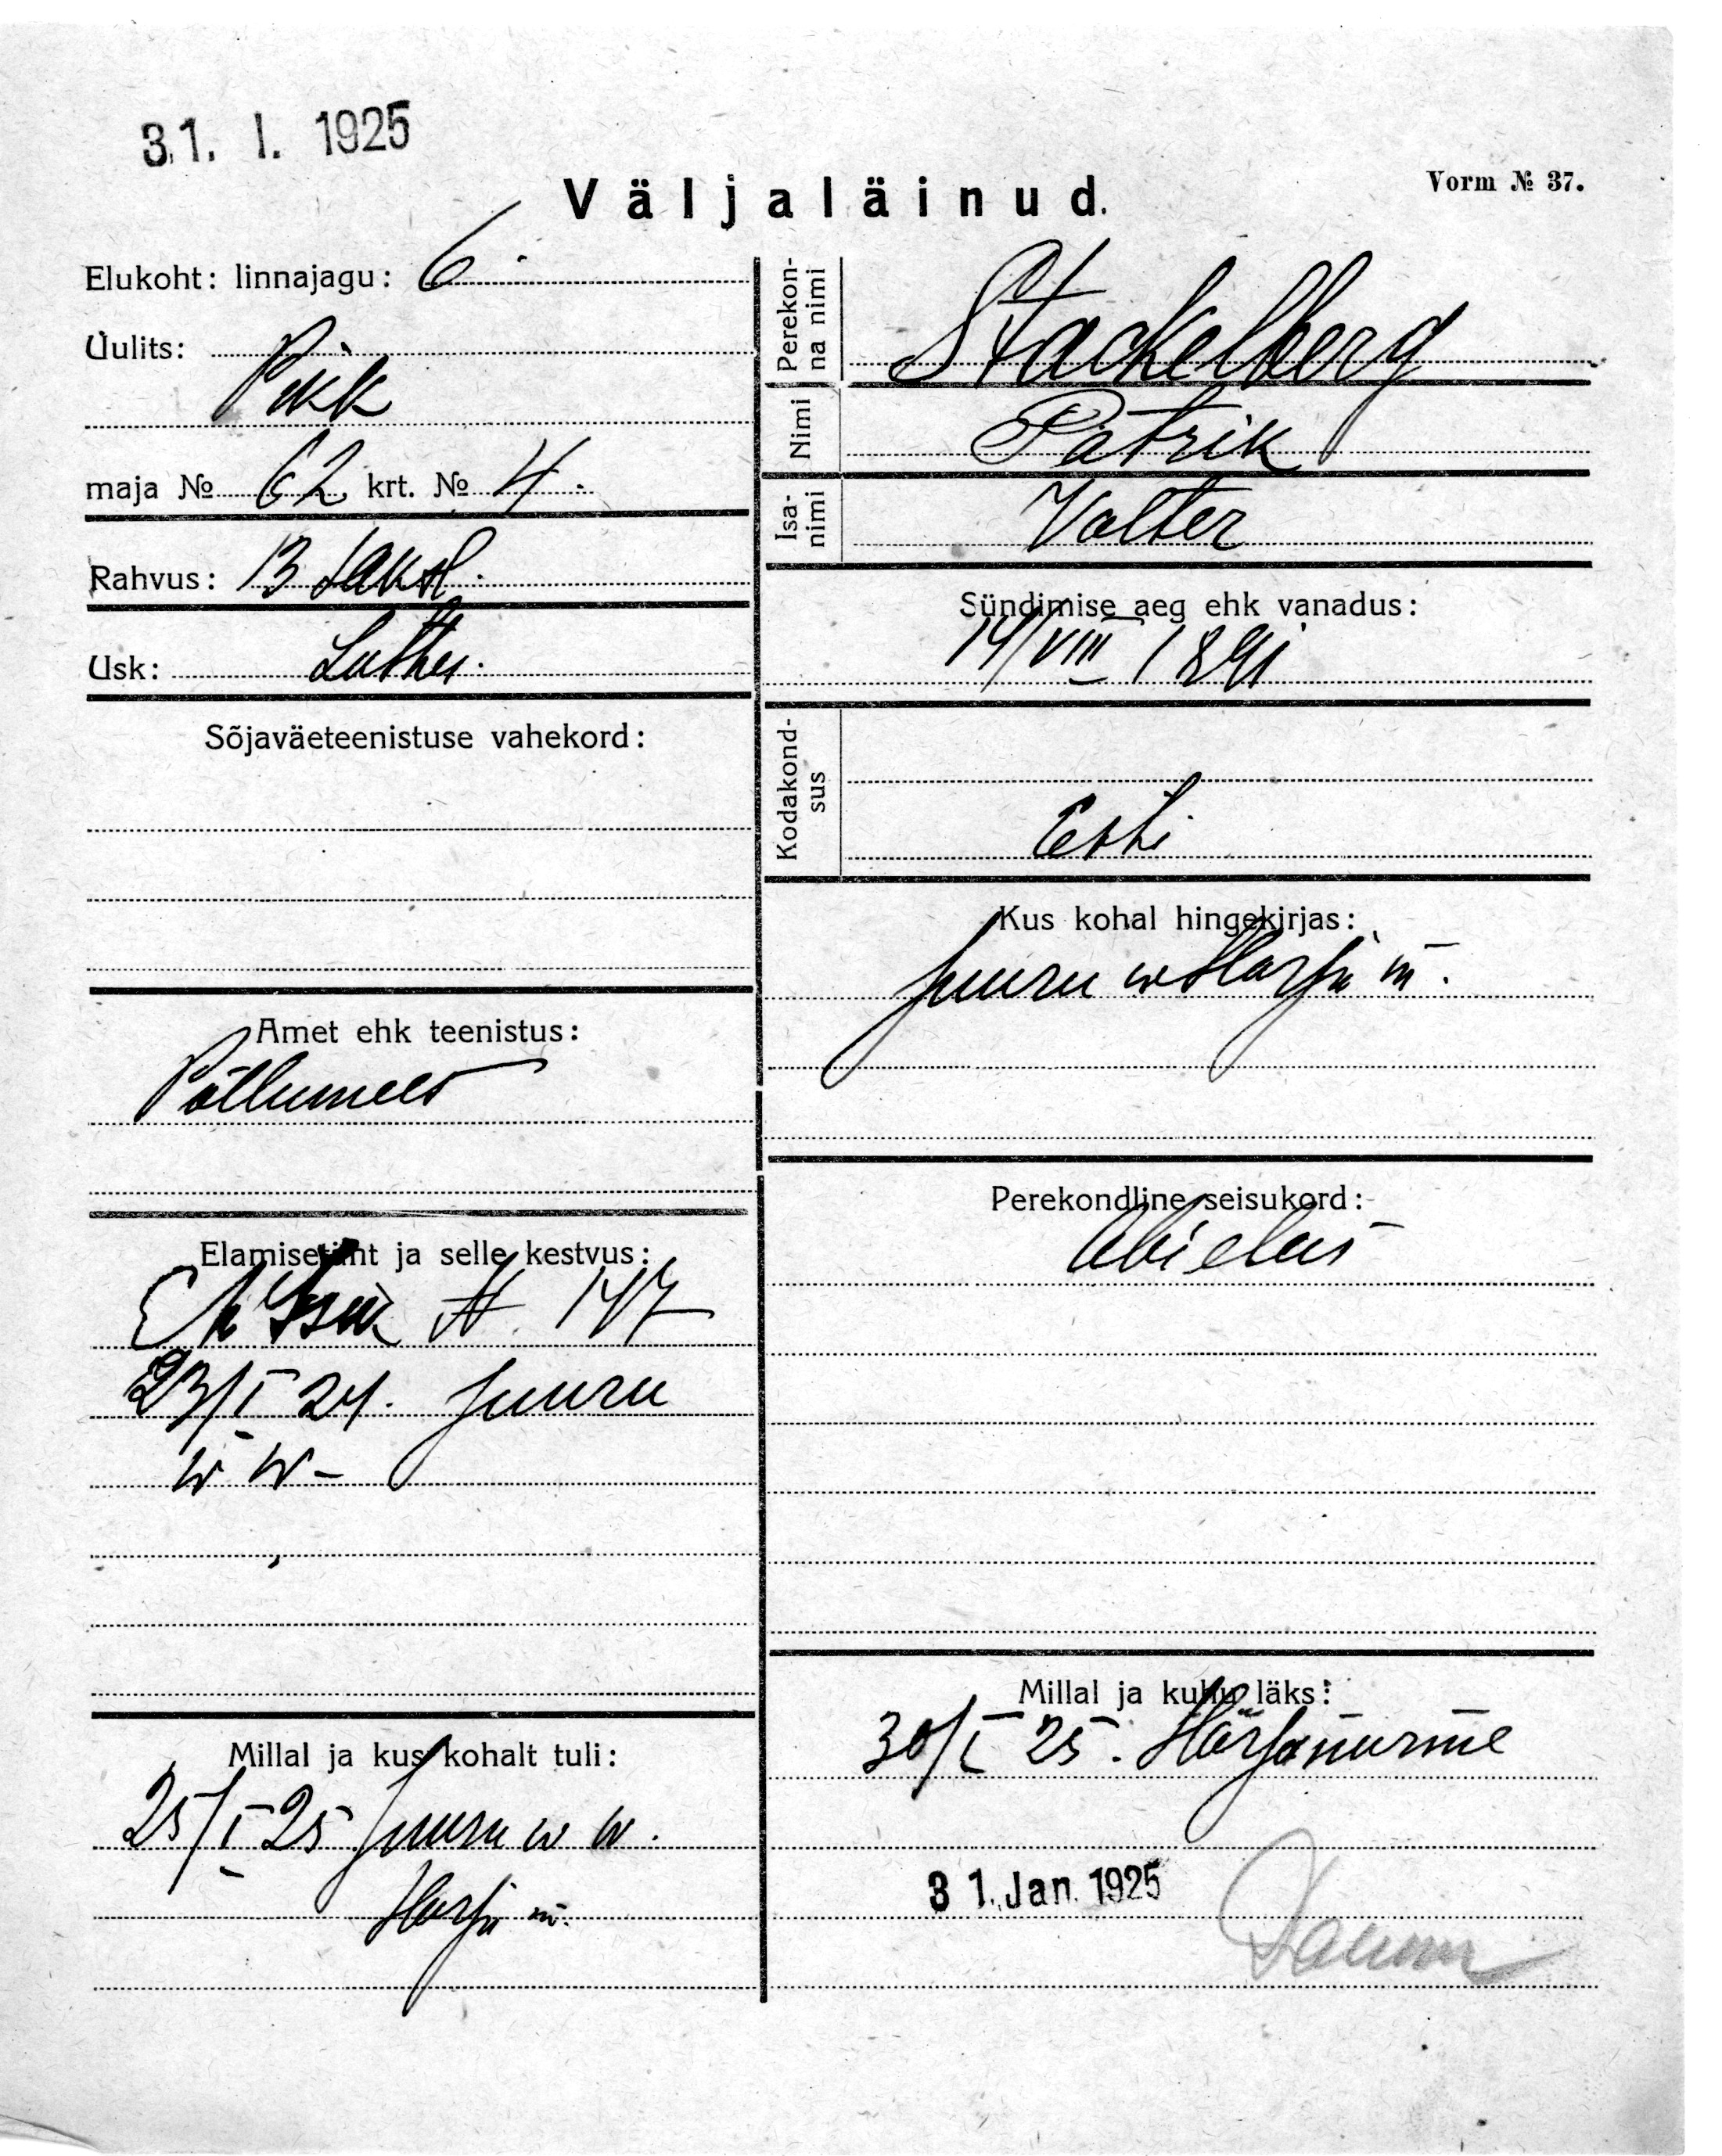 31. I. 1925
Väljaläinud.
Vorm № 37.
Elukoht: linnajagu: 6.
Uulits:
Pikk
maja № 62 krt. № 4.
Rahvus: B Saksl.
Usk: Luther.
Sõjaväeteenistuse vahekord:
Amet ehk teenistus:
Põllumees
Elamisetäht ja selle kestvus:
147
23/I 24. Juuru
w w-
Millal ja kus kohalt tuli:
25/I 25 Juuru w w.
Harju m.
Perekonna nimi
Stackelberg
Nimi
Patrik
Isanimi
Valter
Sündimise aeg ehk vanadus:
14/VIII 1891
Kodakondsus
Eesti
Kus kohal hingekirjas:
Juuru w Harju m.
Perekondline seisukord:
Abielus
Millal ja kuhu läks:
30/I 25. Härjanurme
31. Jan. 1925